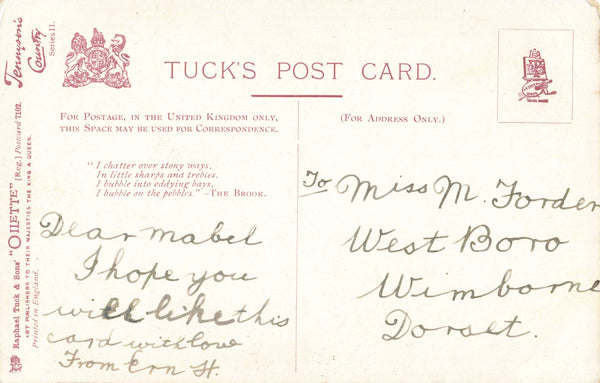 Tennyson's
Country
Series II.
Raphael Tuck & Sons' "OILETTE" [Reg.] Postcard 7102.
ART PUBLISHERS TO THEIR MAJESTIES THE KING & QUEEN.
Printed in England.
TUCK'S POST CARD.
FOR POSTAGE, IN THE UNITED KINGDOM ONLY,
THIS SPACE MAY BE USED FOR CORRESPONDENCE.
(FOR ADDRESS ONLY.)
"I chatter over stony ways,
In little sharps and trebles.
I bubble into eddying bays,
I babble on the pebbles." –THE BROOK.
Dear mabel
I hope you
will like this
card with love
From Ern H.
To Miss M. Forder
West Boro
Wimborne
Dorset.